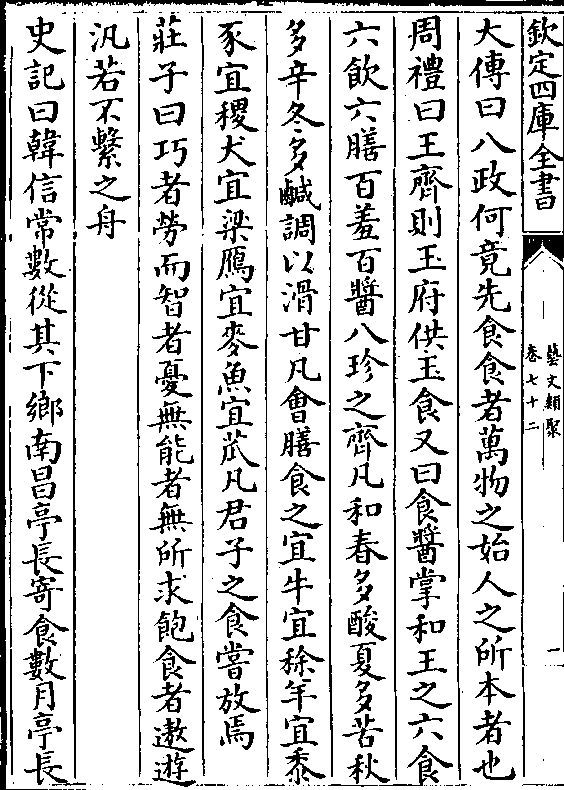 欽定四庫全書
藝文類聚
卷七十二
一
大傳曰八政何竟先食食者萬物之始人之所本者也
周禮曰王齊則玉府供玉食又曰食醬掌和王之六食
六飲六膳百羞百醬八珍之齊凡和春多酸夏多苦秋
多辛冬多鹹調以滑甘凡會膳食之宜牛宜稌羊宜黍
豕宜稷犬宜梁鴈宜麥魚宜苽凡君子之食嘗放焉
莊子曰巧者勞而智者憂無能者無所求飽食者遨遊
汎若不繫之舟
史記曰韓信常數從其下鄉南昌亭長寄食數月亭長